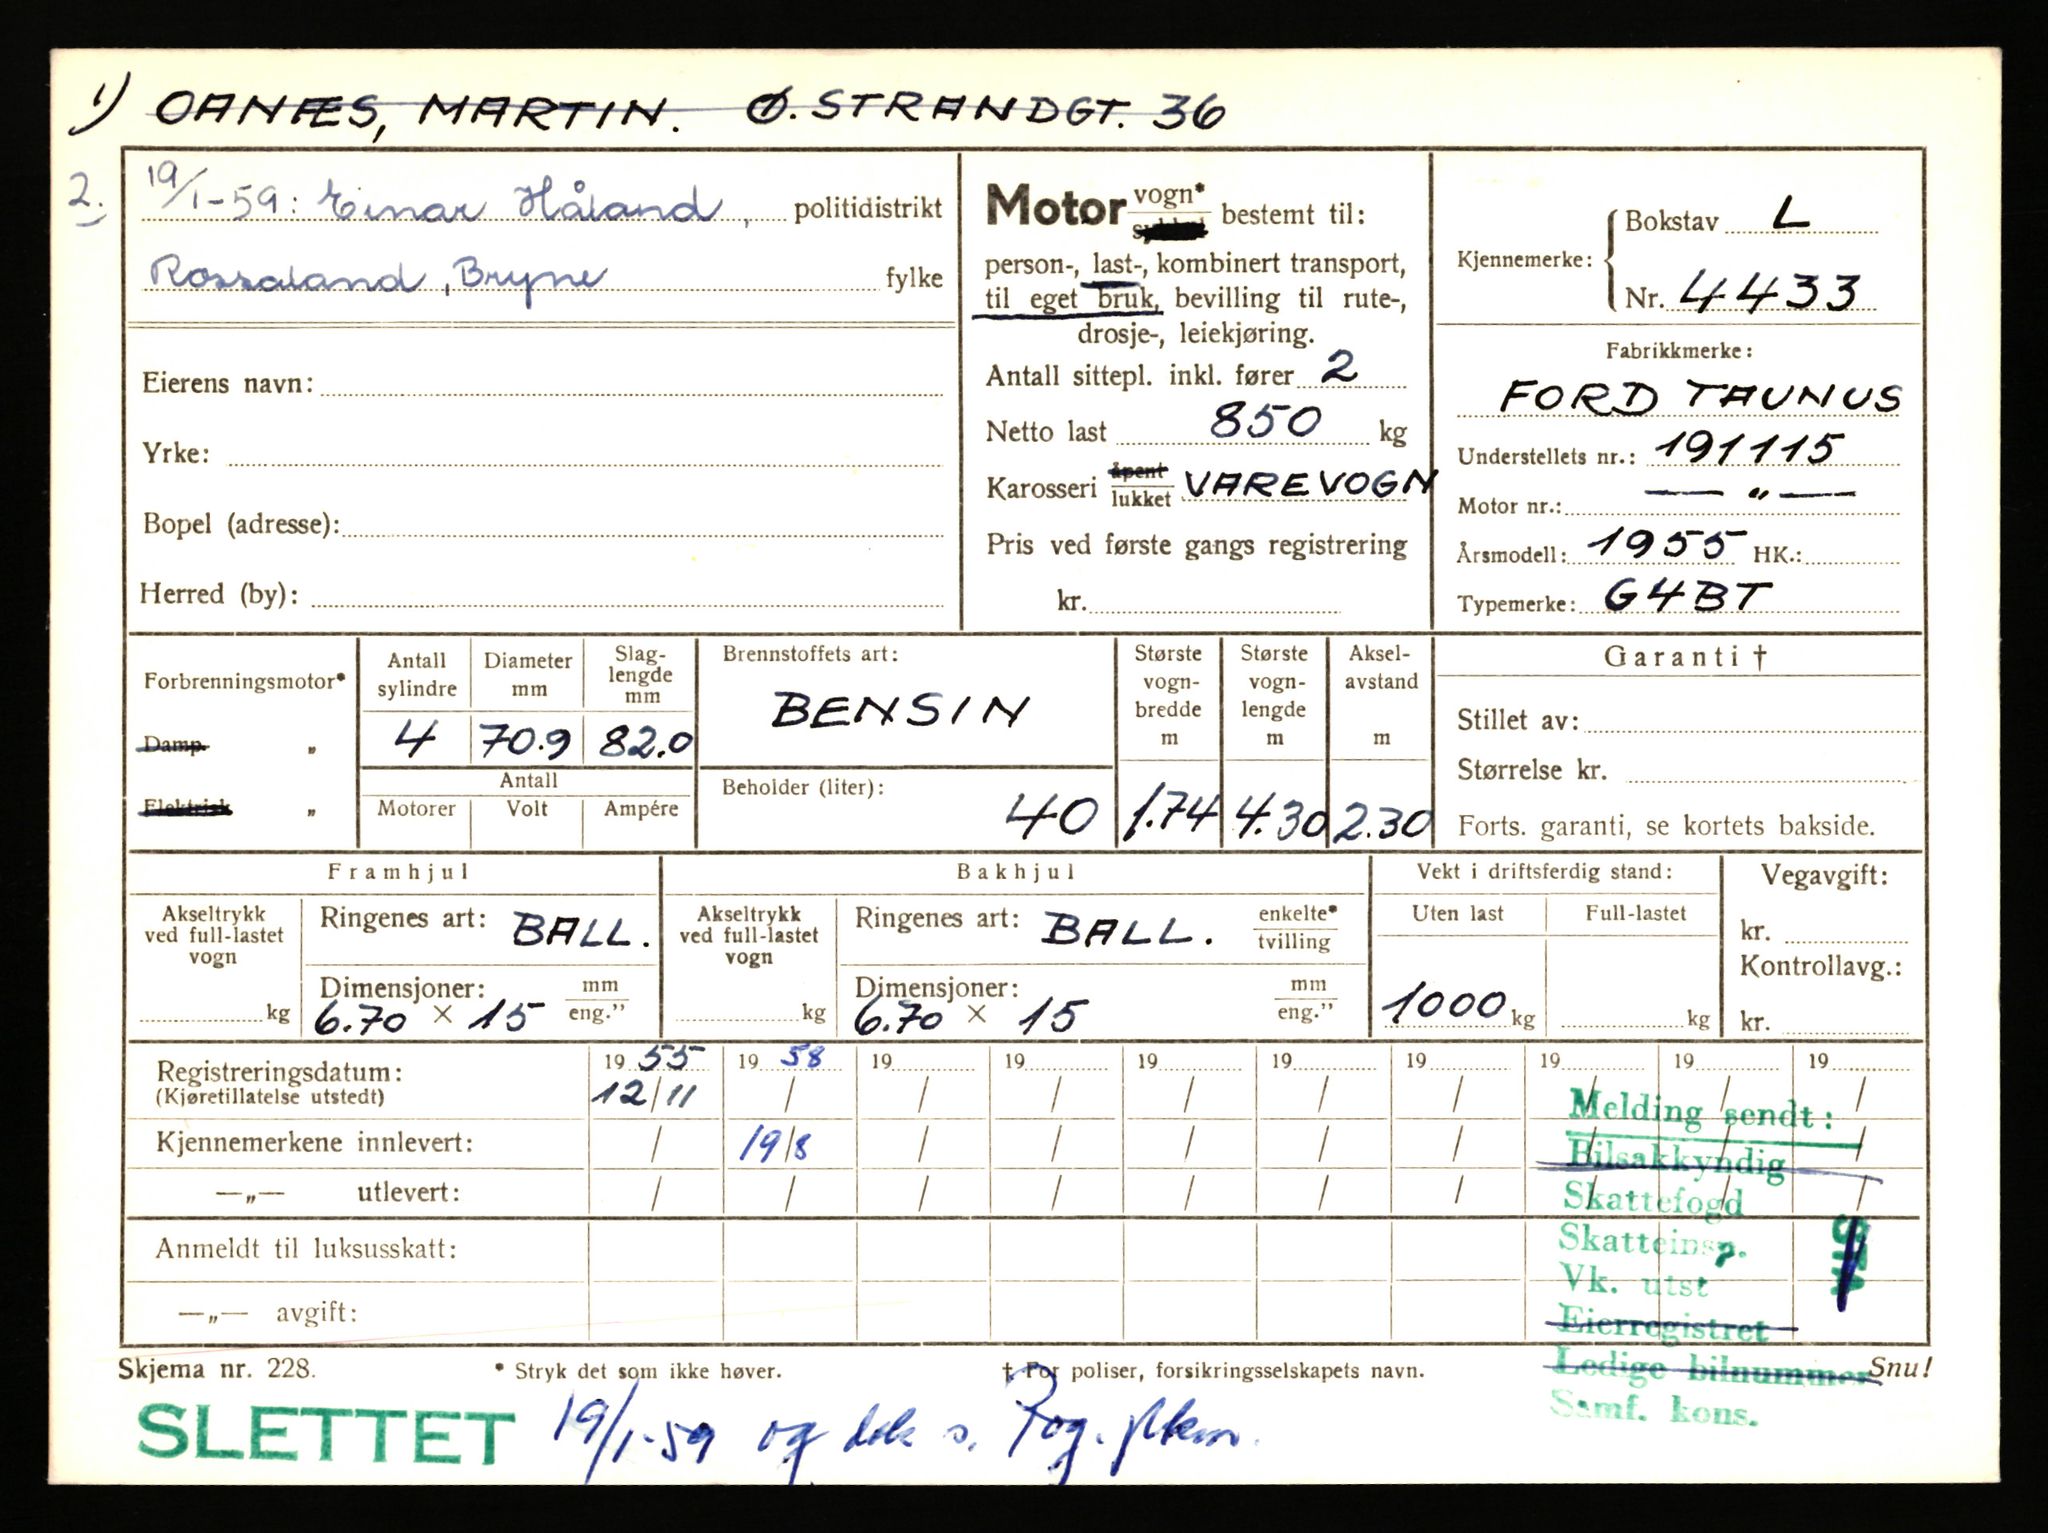 1) OANÆS, MARTIN. Ø. STRANDGT. 36
2. 19/1-59: Einar Håland, politidistrikt
Rossaland, Bryne fylke
Eierens navn:
Yrke:
Bopel (adresse):
Herred (by):
Motor vogn* bestemt til:
person-, last-, kombinert transport,
til eget bruk, bevilling til rute-,
drosje-, leiekjøring.
Antall sittepl. inkl. fører 2
Netto last 850 kg
Karosseri åpent lukket VAREVOGN
Pris ved første gangs registrering
kr.
Kjennemerke: Bokstav L
Nr. 4433
Fabrikkmerke:
FORD TAUNUS
Understellets nr.: 191115
Motor nr.: — " —
Årsmodell: 1955 HK.:
Typemerke: G4BT
Forbrenningsmotor*
Damp. „
Elektrisk „
Antall sylindre Diameter mm Slag-lengde mm
4 70.9 82.0
Antall
Motorer Volt Ampére
Brennstoffets art:
BENSIN
Beholder (liter):
40
Største vogn-bredde m Største vogn-lengde m Aksel-avstand m
1.74 4.30 2.30
Garanti †
Stillet av:
Størrelse kr.
Forts. garanti, se kortets bakside.
Framhjul
Akseltrykk ved full-lastet vogn
kg
Ringenes art: BALL.
Dimensjoner: mm eng.”
6.70 × 15
Bakhjul
Akseltrykk ved full-lastet vogn
kg
Ringenes art: BALL. enkelte* tvilling
Dimensjoner: mm eng.”
6.70 × 15
Vekt i driftsferdig stand:
Uten last Full-lastet
1000 kg kg
Vegavgift:
kr.
Kontrollavg.:
kr.
Registreringsdatum: 19 55 19 58 19 19 19 19 19 19 19 19
(Kjøretillatelse utstedt) 12/11 / / / / / / / / /
Kjennemerkene innlevert: / 19/8 / / / / / / / /
—„— utlevert: / / / / / / / / / /
Anmeldt til luksusskatt:
—„— avgift:
Melding sendt:
Bilsakkyndig
Skattefogd
Skatteinsp.
Vk. utst
Eierregistret
Ledige bilnummer
Samf. kons.
Skjema nr. 228. * Stryk det som ikke høver. † For poliser, forsikringsselskapets navn. Snu!
SLETTET 19/1-59 og